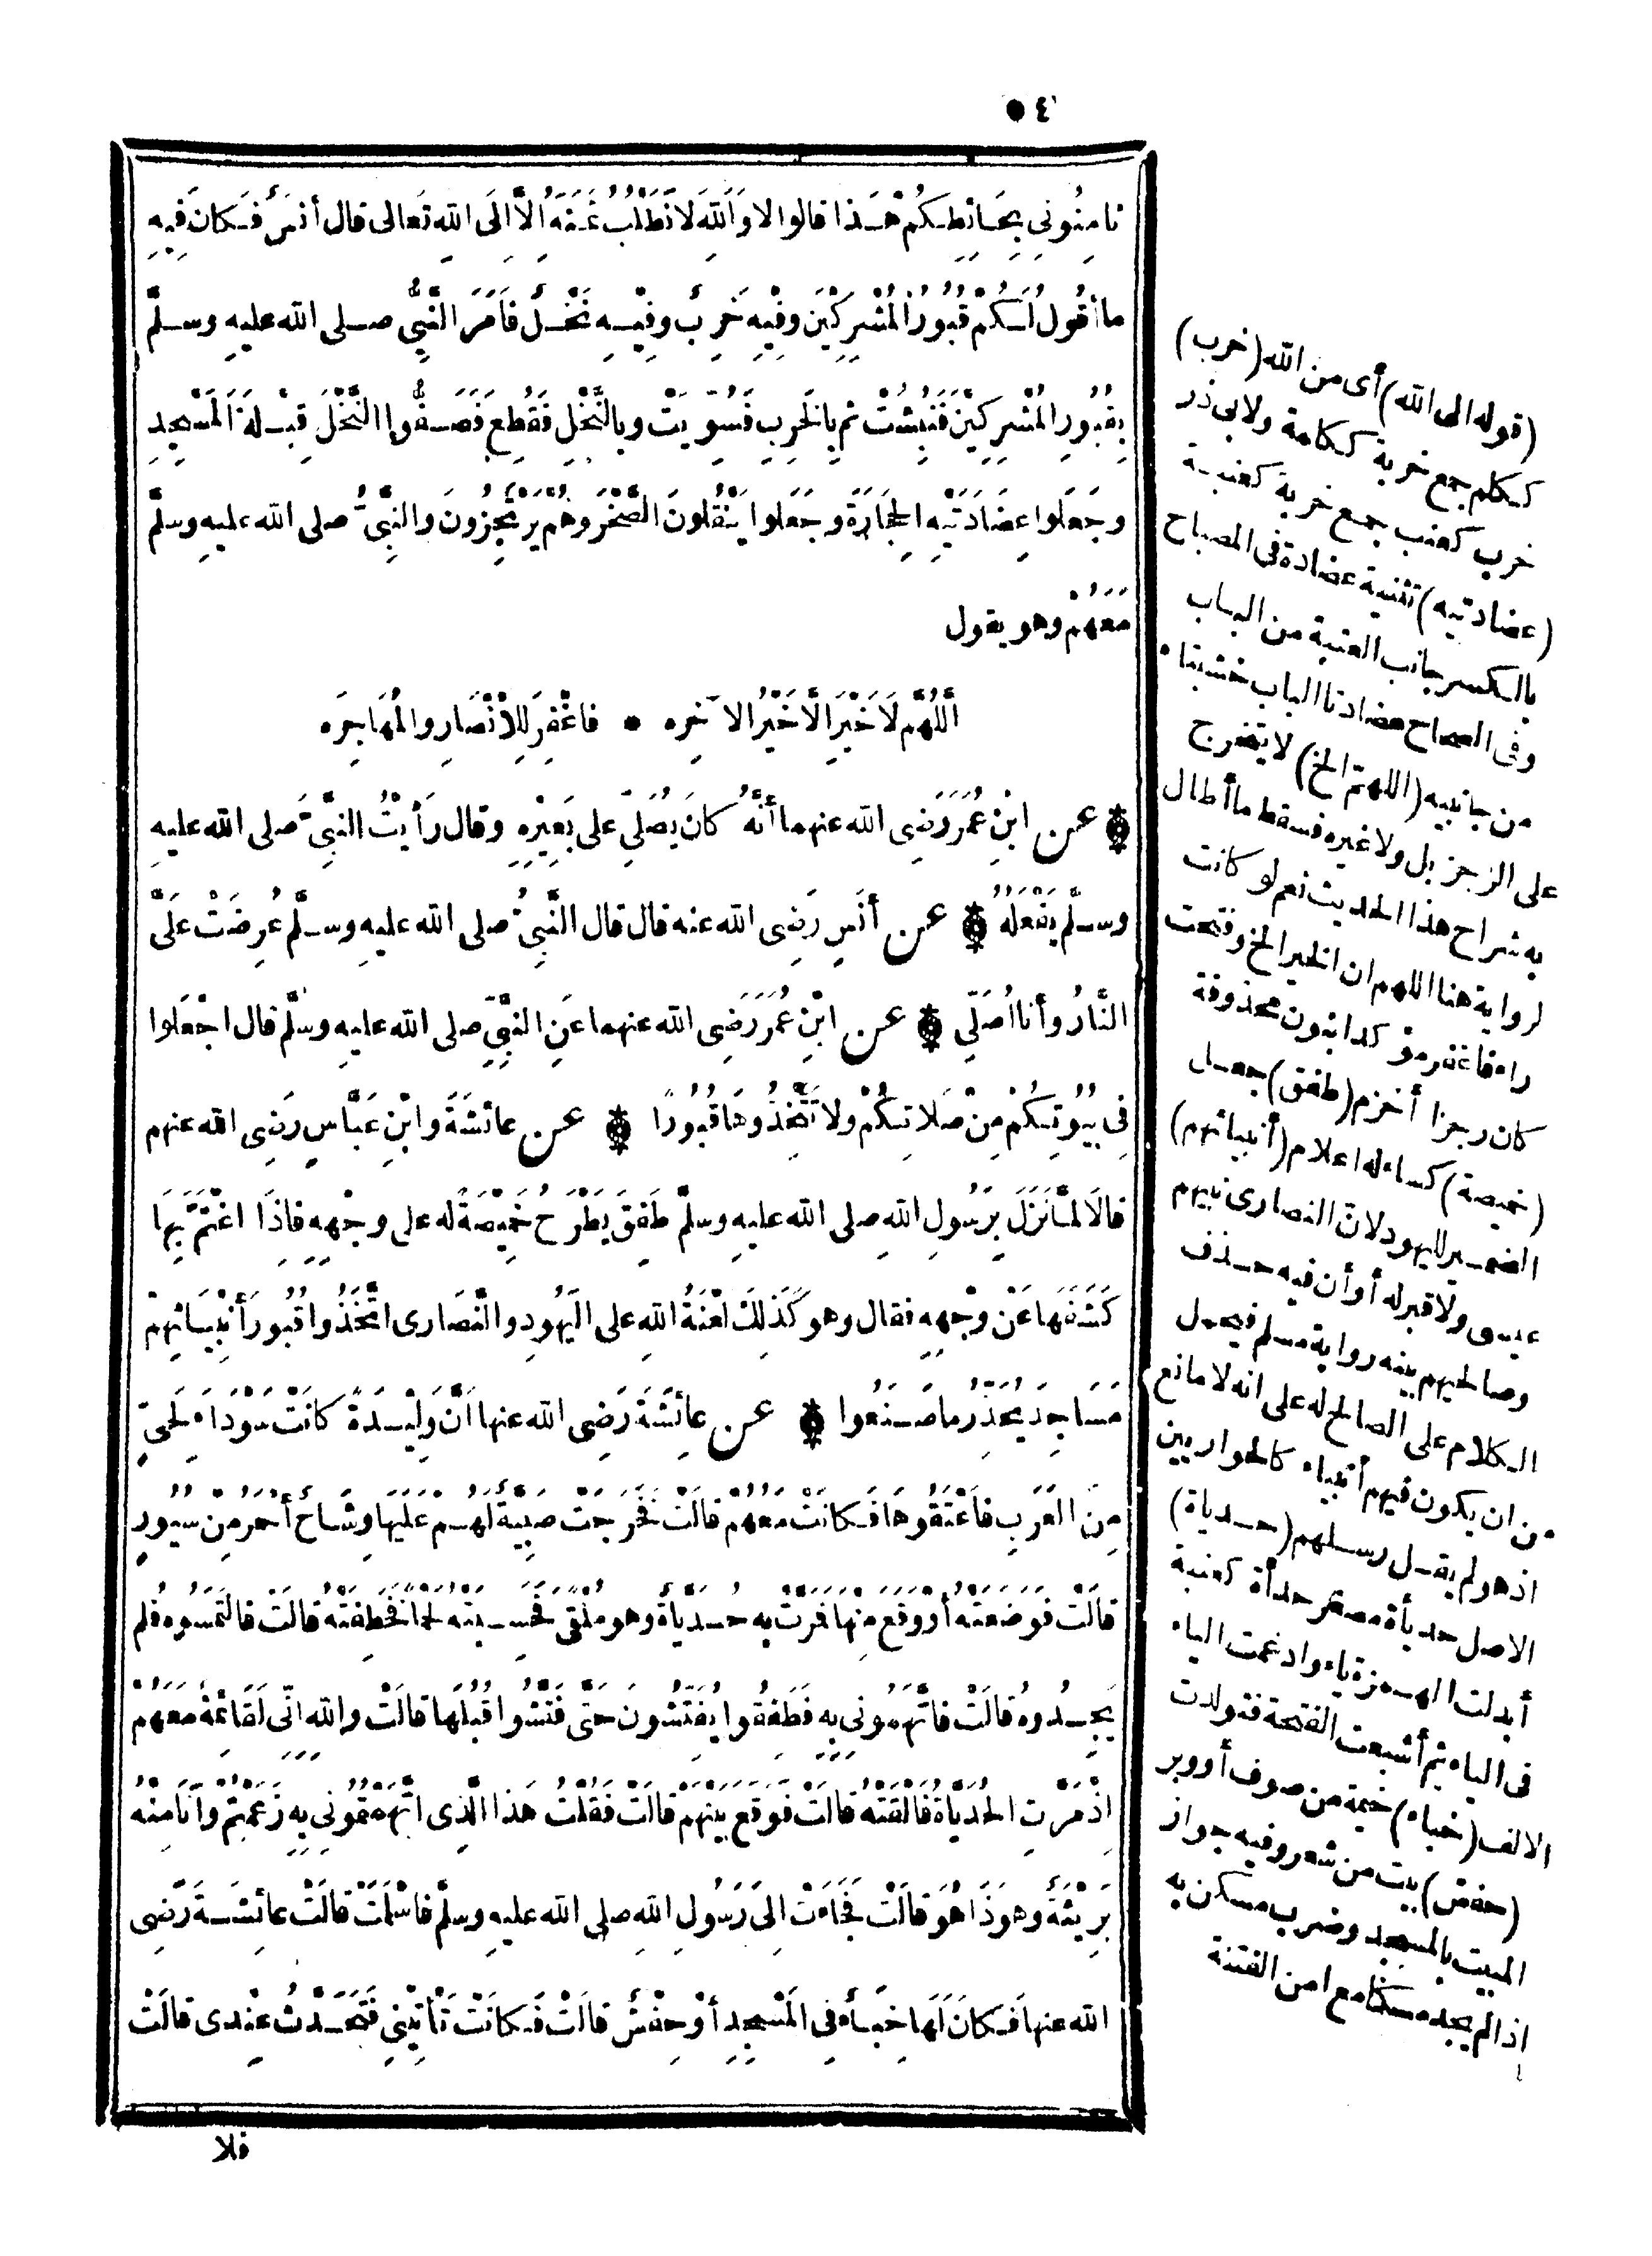 ٤٠
ثامِنُونِي بِحَائِطِكُمْ هَذا قالوا لا وَاللّٰهِ لا نَطْلُبُ ثَمَنَهُ إِلَّا إِلَى اللّٰهِ تَعالى قال أنَسٌ فَكانَ فِيهِ
ما أقُولُ لَكُمْ قُبُورُ المُشْرِكِينَ وفِيْهِ خَرِبٌ وفِيْهِ نَخْلٌ فَأَمَرَ النَّبِيُّ صلى الله عليهِ وسلَّم
بِقُبُورِ المُشْرِكِيْنَ فَنُبِشَتْ ثم بِالْخَرِبِ فَسُوِّيَتْ وبِالنَّخْلِ فَقُطِعَ فَصَفُّوا النَّخْلَ قِبْلَةَ المَسْجِدِ
وجَعَلوا عِضَادَتَيْهِ الحِجَارَةَ وجَعَلوا يَنْقُلونَ الصَّخْرَ وهُم يَرْتَجِزُونَ والنبِيُّ صلى الله عليهِ وسلَّم
مَعَهُمْ وهو يقول
أللّٰهُمَّ لَا خَيْرَ إِلَّا خَيْرُ الآخِرِه • فاغْفِرْ لِلأَنْصَارِ والمُهَاجِرَه
عن ابْنِ عُمَرَ رَضِى الله عنهما أنَّهُ كانَ يُصَلِّي على بَعِيْرِهِ وقال رَأَيْتُ النبِيَّ صلى الله عليهِ
وسلَّم يَفْعَلُهُ عن أنَسٍ رَضِى الله عنه قال قال النَّبِيُّ صلى الله عليهِ وسلَّم عُرِضَتْ عَلَيَّ
النَّارُ وأنا أُصَلِّي عن ابْنِ عُمَرَ رَضِى الله عنهما عَنِ النبِيِّ صلى الله عليهِ وسلَّم قال اجْعَلوا
فِي بُيُوتِكُمْ مِنْ صَلاتِكُمْ ولا تَتَّخِذُوهَا قُبُورًا عن عائشَةَ وابْنِ عَبَّاسٍ رَضِى الله عنهم
قالَا لَمَّا نَزَلَ بِرَسُولِ اللهِ صلى الله عليهِ وسلَّم طَفِقَ يَطْرَحُ خَمِيْصَةً له على وجْهِهِ فإذَا اغْتَمَّ بِهَا
كَشَفَهَا عَنْ وجْهِهِ فقال وهو كَذَلِكَ لَعْنَةُ اللهِ على اليَهُودِ والنَّصَارى اتَّخَذُوا قُبُورَ أَنْبِيَائِهِمْ
مَسَاجِدَ يُحَذِّرُ ما صَنَعُوا عن عائِشَةَ رَضِى الله عنها أنَّ وَلِيْدَةً كانَتْ سَوْدَاءَ لِحَيٍّ
مِنَ العَرَبِ فأَعْتَقُوهَا فَكانَتْ مَعَهُمْ قالَتْ فَخَرَجَتْ صَبِيَّةٌ لَهُمْ عَلَيْهَا وِشَاحٌ أَحْمَرُ مِنْ سُيُورٍ
قالَتْ فَوَضَعَتْهُ أَوْ وَقَعَ مِنْهَا فَمَرَّتْ بِهِ حُدَيَّاةٌ وهو مُلْقًى فَحَسِبَتْهُ لَحْمًا فَخَطِفَتْهُ قالَتْ فالتَمَسُوه فلم
يَجِدُوهُ قالَتْ فاتَّهَمُونِي بِهِ فَطَفِقُوا يُفَتِّشُونَ حَتَّى فَتَّشُوا قُبُلَهَا قالَتْ واللهِ إنِّي لَقَائِمَةٌ مَعَهُمْ
إذْ مَرَّتِ الحُدَيَّاةُ فَأَلْقَتْهُ قالَتْ فَوَقَعَ بَيْنَهُمْ قالَتْ فَقُلْتُ هَذا الَّذِى اتَّهَمْتُمُونِي بِهِ زَعَمْتُمْ وأنَا مِنْهُ
بَرِيْئَةٌ وهو ذَا هُوَ قالَتْ فَجَاءَتْ إلَى رَسُولِ اللهِ صلى الله عليهِ وسلَّم فأسْلَمَتْ قالَتْ عائِشَةَ رَضِى
الله عنها فَكانَ لَهَا خِبَاءٌ فى المَسْجِدِ أوْ حِفْشٌ قالَتْ فَكانَتْ تَأْتِيْنِي فَتَحَدَّثُ عِنْدِى قالَتْ
فلا
(قوله الى الله) أى من الله (خرب)
ككلم جمع خربة ككلمة ولابى ذر
خرب كعنب جمع خربة كعنبة
(عضادتيه) تثنية عضادة فى المصباح
بالكسر جانب العتبة من الباب
وفى الصحاح عضادتا الباب خشبتاه
من جانبيه (اللهم الخ) لا يتخرج
على الرجز بل ولا غيره فسقط ما أطال
به شراح هذا الحديث نعم لو كانت
لرواية هنا اللهم ان الخير الخ وفتحت
راء فاغفر مؤكدا بنون محذوفة
كان رجزا أخزم (طفق) جعل
(خميصة) كساء له اعلام (أنبيائهم)
الضمير لليهود لان النصارى نبيهم
عيسى ولا قبر له أو أن فيه حذف
وصالحيهم بينه رواية مسلم فيحمل
الكلام على الصالح له على انه لا مانع
من ان يكون فيهم أنبياء كالحواريين
اذ هو لم يقل رسلهم (حدياة)
الاصل حديأة مصغر حدأة كعنبة
أبدلت الهمزة ياء وادغمت الياء
فى الياء ثم أشبعت الفتحة فتولدت
الالف (خباء) خيمة من صوف أو وبر
(حفش) بيت من شعر وفيه جواز
المبيت بالمسجد وضرب مسكن به
اذا لم يجد مسكنا مع امن الفتنة